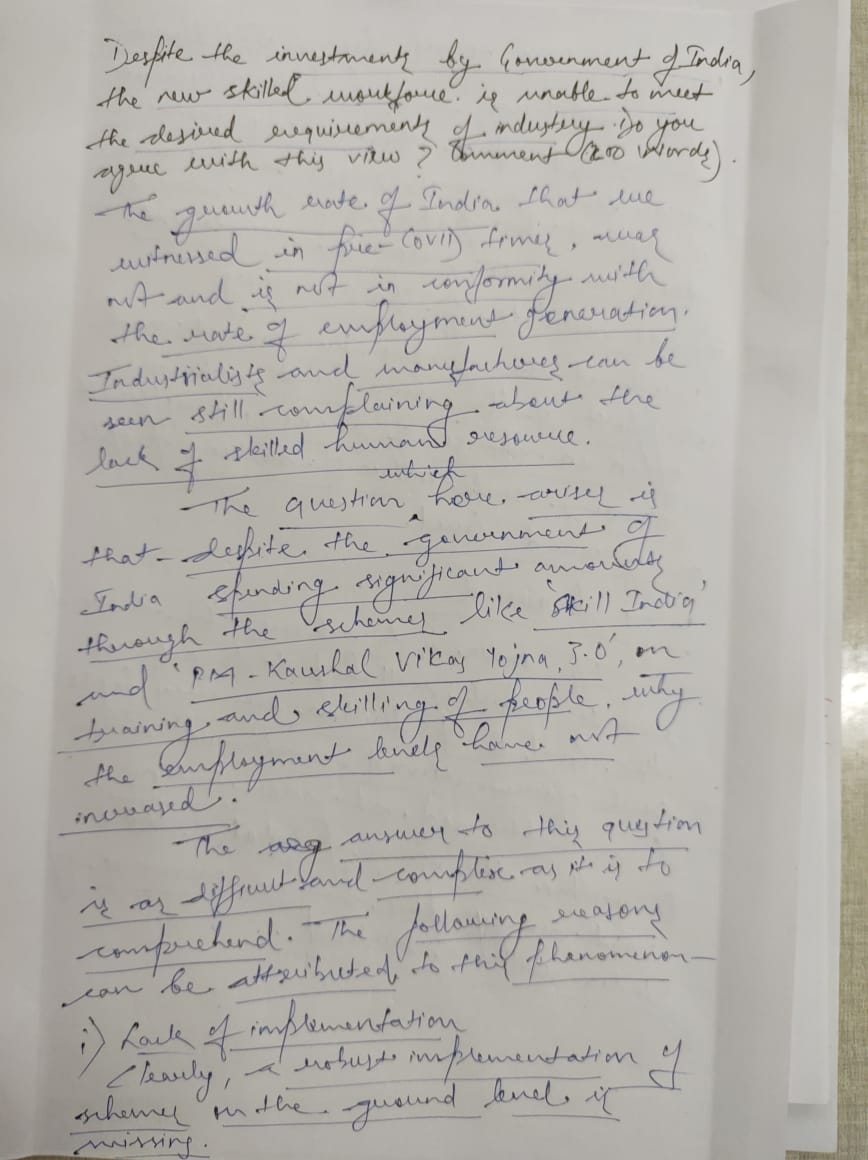 Despite the investments by Government of India,
the new skilled workforce is unable to meet
the desired requirements of industry. Do you
agree with this view? Comment (200 Words).
The growth rate of India that we
witnessed in pre-COVID times, was
not and is not in conformity with
the rate of employment generation.
Industrialists and manufactures can be
seen still complaining about the
lack of skilled human resource.
which
The question here arises is
that despite the government of
India spending significant amounts
through the schemes like 'Skill India'
and 'PM-Kaushal Vikas Yojna, 3.0', on
training and skilling of people, why
the employment levels have not
increased.
The answer to this question
is as difficult and complex as it is to
comprehend. The following reasons
can be attributed to this phenomenon-
i) Lack of implementation
Clearly, a robust implementation of
schemes on the ground level is
missing.